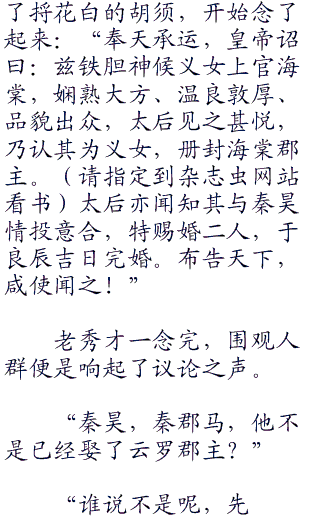 了捋花白的胡须，开始念了
起来：“奉天承运，皇帝诏
曰：兹铁胆神候义女上官海
棠，娴熟大方、温良敦厚、
品貌出众，太后见之甚悦，
乃认其为义女，册封海棠郡
主。（请指定到杂志虫网站
看书）太后亦闻知其与秦昊
情投意合，特赐婚二人，于
良辰吉日完婚。布告天下，
咸使闻之！”
老秀才一念完，围观人
群便是响起了议论之声。
“秦昊，秦郡马，他不
是已经娶了云罗郡主？”
“谁说不是呢，先